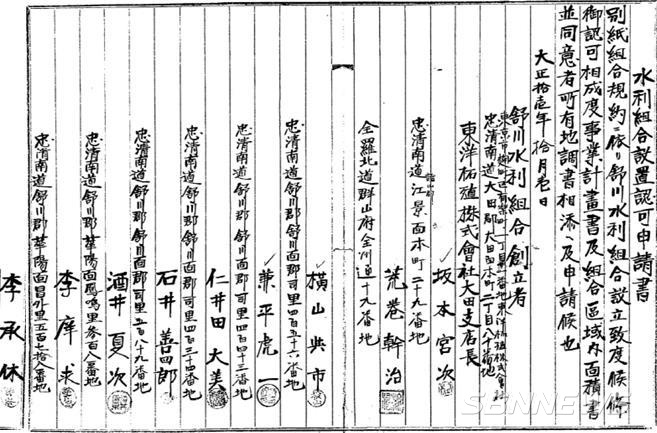 水利組合設置認可申請書
別紙組合規約ニ依リ舒川水利組合設立致度候條
御認可相成度事業計畫書及組合區域内面積書
並同意者所有地調書相添ヘ及申請候也
大正拾壱年 拾月壱日
舒川水利組合創立者
忠清南道大田郡大田面本町二丁目八十番地
東洋拓殖株式會社大田支店長
坂本宮次
忠清南道江景面本町二十九番地
荒巻幹治
全羅北道群山府全州通十九番地
横山與市
忠清南道舒川郡舒川面郡司里四百五十六番地
兼平虎一
忠清南道舒川郡舒川面郡司里四百四十三番地
仁井田大美
忠清南道舒川郡舒川面郡司里四百三十四番地
石井善四郎
忠清南道舒川郡舒川面郡司里二百八十九番地
酒井夏次
忠清南道舒川郡華陽面鳳鳴里参百八番地
李
忠清南道舒川郡華陽面昌外里五百七拾八番地
李承休
SBNNEWS